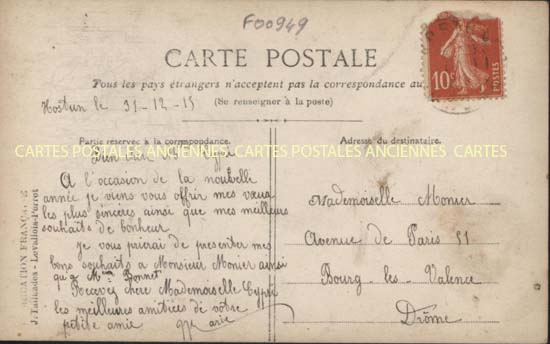 F00949
CARTE POSTALE
Tous les pays étrangers n'acceptent pas la correspondance au
(Se renseigner à la poste)
10c
POSTES
Hostun le 31-12-15
Partie réservée à la correspondance.
Bien
CARTES POSTALES ANCIENNES CARTES POSTALES ANCIENNES CARTES
A l'occasion de la nouvelle
année je viens vous offrir mes vœux
les plus sincères ainsi que mes meilleurs
souhaits de bonheur
je vous prierai de presenter mes
bons souhaits a Monsieur Monier ainsi
qu'a Mme Bonnet
Recevez chère Mademoiselle
les meilleures amitiées de vôtre
petite amie Marie
Adresse du destinataire.
Mademoiselle Monier
Avenue de Paris 51
Bourg-les-Valence
Drôme
J. Taillades - Levallois-Perret